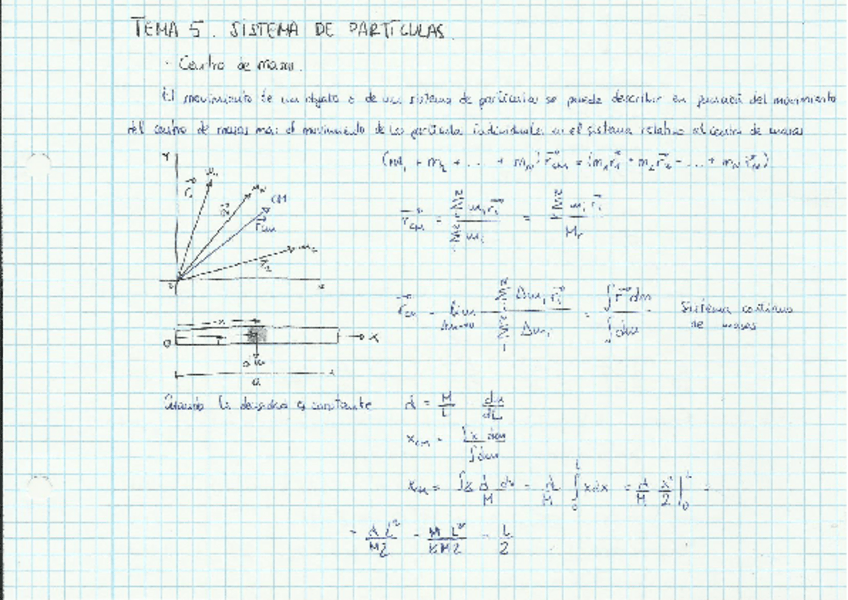 TEMA 5. SISTEMA DE PARTÍCULAS.
- Centro de masas.
El movimiento de un objeto o de un sistema de partículas se puede describir en función del movimiento
del centro de masas mas el movimiento de las partículas individuales en el sistema relativo al centro de masas
(m₁ + m₂ + ... + m_N) r⃗_CM = (m₁r⃗₁ + m₂r⃗₂ + ... + m_N r⃗_N)
Y
m₁
r⃗₁
m_N
CM
r⃗_CM
m₂
r⃗₂
r⃗_CM = Σ m_i r⃗_i / Σ m_i = Σ m_i r⃗_i / M_T
r⃗_CM = lim Δm→0 Σ Δm_i r⃗_i / Σ Δm_i = ∫ r⃗ dm / ∫ dm
Sistema continuo
de masas
x
O
X
Cuando la densidad es constante
d = M/L = dm/dL
x_CM = ∫ x dm / ∫ dm
x_CM = ∫ x d/M dx = d/M ∫₀ᴸ x dx = d/M x²/2 |₀ᴸ =
= d L² / M2 = M L² / L M2 = L/2